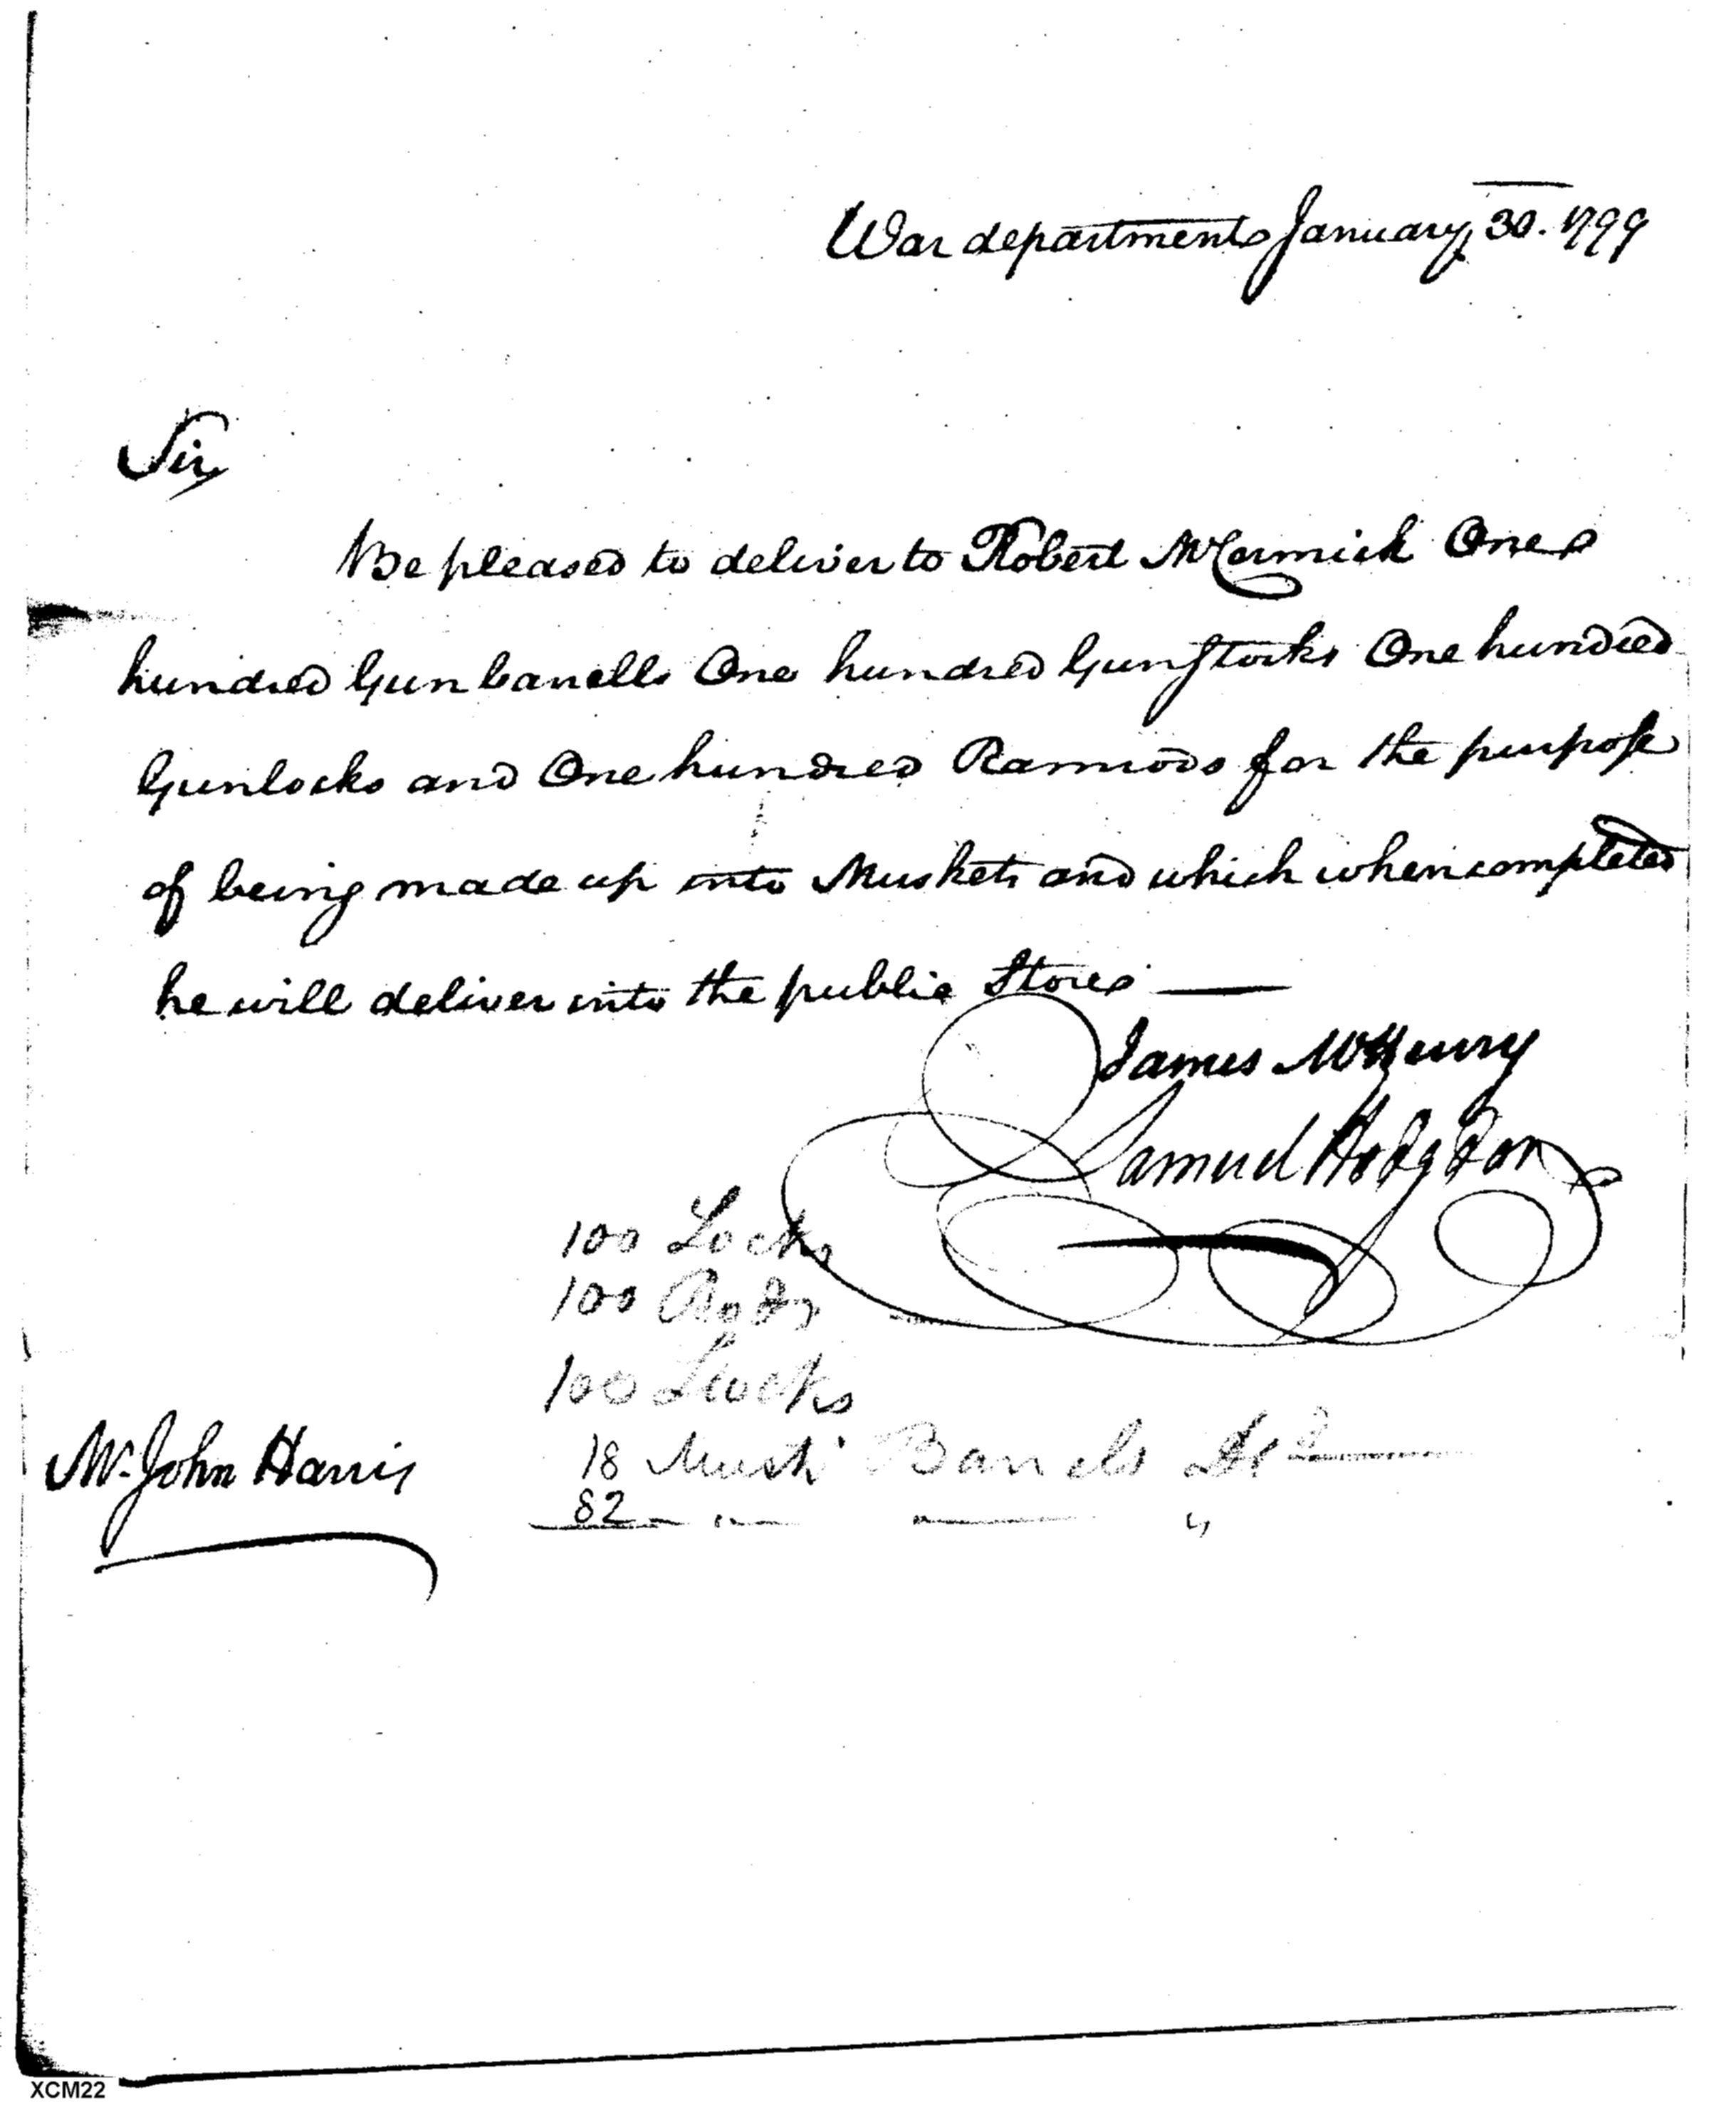 War department January 30. 1799
Sir,
Be pleased to deliver to Robert McCormick One
hundred Gun barrells One hundred Gunstocks One hundred
Gunlocks and One hundred Ramrods for the purpose
of being made up into Muskets and which when completed
he will deliver into the public Stores —
James McHenry
Samuel Hodgdon
100 Locks
100 Rods
100 Stocks
18 Musk Barrels
82 " "
Mr. John Harris
XCM22